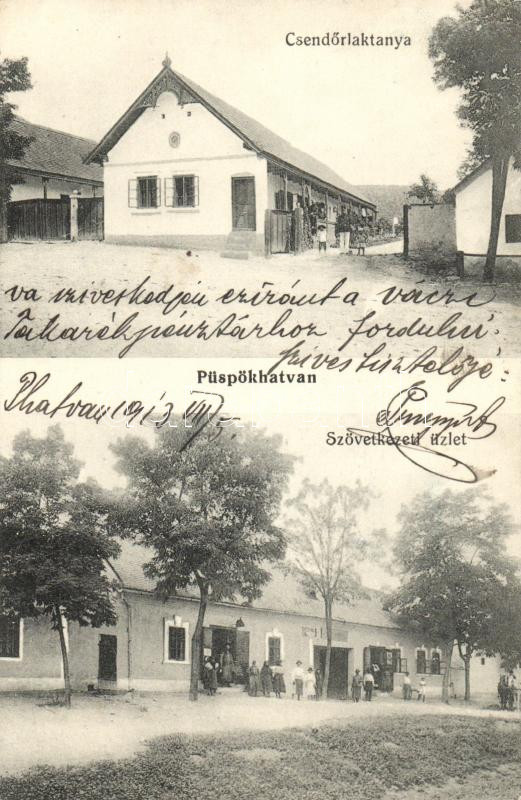 Csendőrlaktanya
va sziveskedjen eziránt a váczi
Takarékpénztárhoz fordulni.
Szives tisztelője:
Püspökhatvan
Phatvan 1913 VII/5.
Szövetkezeti üzlet